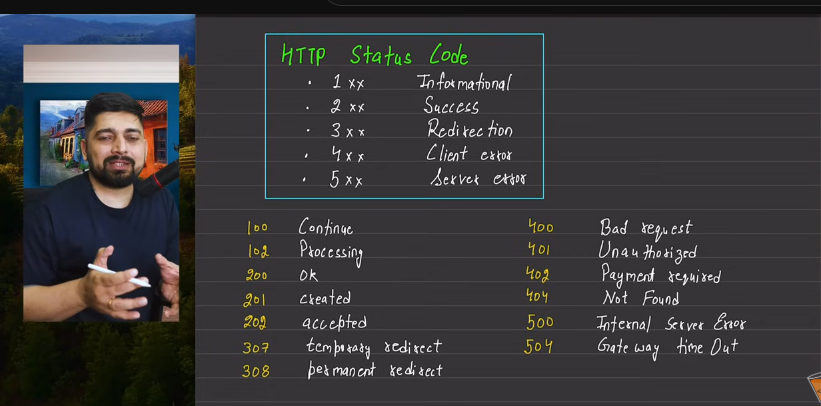 HTTP Status Code
• 1xx Informational
• 2xx Success
• 3xx Redirection
• 4xx Client error
• 5xx Server error
100 Continue
102 Processing
200 OK
201 created
202 accepted
307 temporary redirect
308 permanent redirect
400 Bad request
401 Unauthorized
402 Payment required
404 Not Found
500 Internal Server Error
504 Gateway time Out